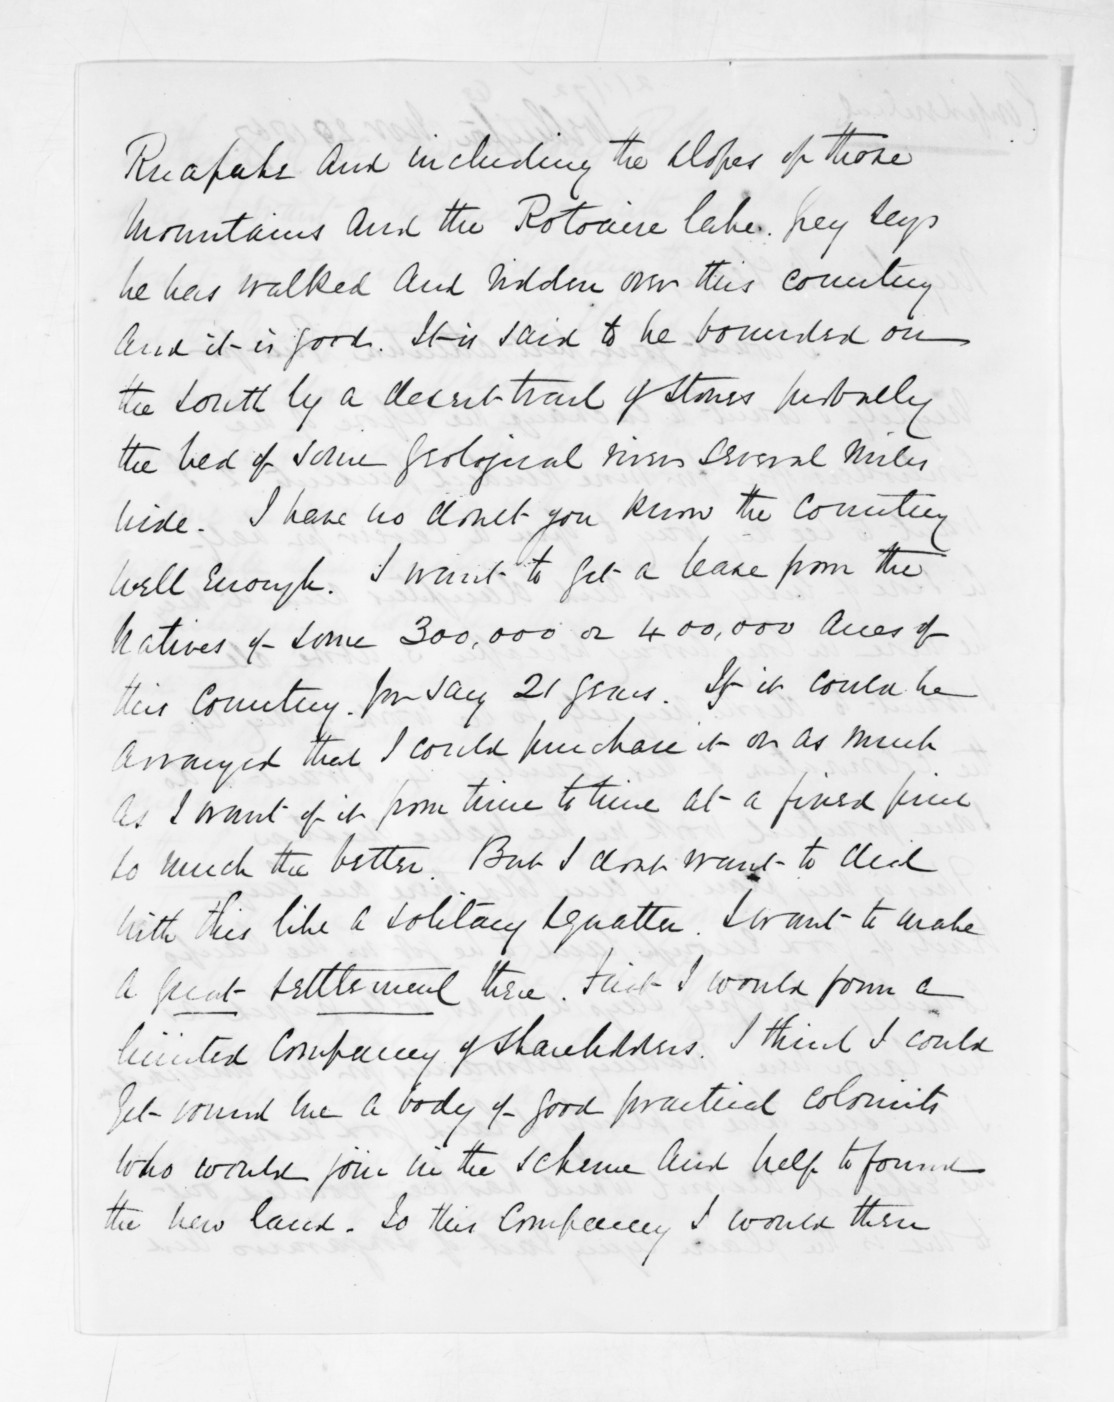 Ruapahu and including the slopes of those
mountains and the Rotoaire lake. Grey says
he has walked and ridden over this country
and it is good. It is said to be bounded on
the south by a desert tract of stones probably
the bed of some geological river several miles
wide. I have no doubt you know the country
well enough. I want to get a lease from the
Natives of some 300,000 or 400,000 acres of
this country. for say 21 years. If it could be
arranged that I could purchase it or as much
as I want of it from time to time at a fixed price
so much the better. But I dont want to deal
with this like a solitary squatter. I want to make
a great settlement there. First I would form a
limited Company of Shareholders. I think I could
get round me a body of good practical colonists
who would join in the scheme and help to found
the new land. To this Company I would then